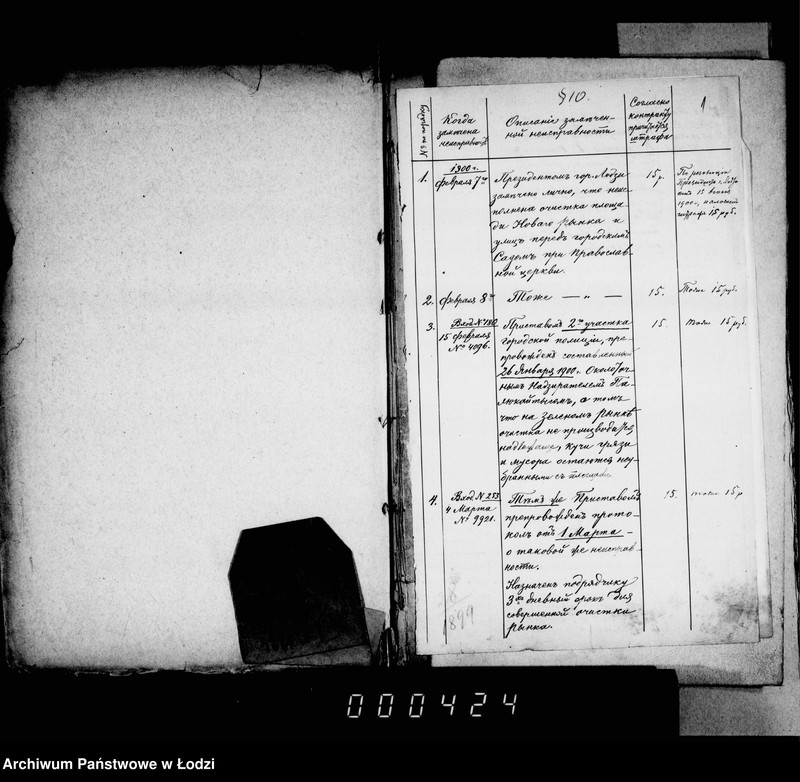 § 10.
1
№ по порядку
Когда
замѣчена
неисправность
Описаніе замѣчен-
ной неисправности
Согласно
контракту
штрафа
1.
1900 г.
Февраля 7го
Президентомъ гор. Лодзи
замѣчено лично, что неис-
полнена очистка площа-
ди Новаго рынка и
улицъ передъ городскимъ
Садомъ при Православ-
ной церкви.
15 р.
По резолюціи
Президента г. Лодзи
1900 г. наложенъ
штрафъ 15 руб.
2. Февраля 8го
Тоже — „ —
15.
Тоже 15 руб.
3.
Вход. №
15 Февраля
№ 4096.
Приставомъ 2го участка
городской полиціи, пре-
провожденъ составленный
26 Января 1900 г. Околоточ-
нымъ Надзирателемъ
о томъ
что на Зеленомъ рынкѣ
очистка не производится
надлежаще, кучи грязи
и мусора остаются неу-
бранными съ площади
15.
тоже 15 руб.
4.
Вход. № 253
4 Марта
№ 9921.
Тѣмъ же Приставомъ
препровожденъ прото-
колъ отъ 1 Марта —
о таковой же неисправ-
ности.
Назначенъ подрядчику
3хъ дневный срокъ для
совершенной очистки
рынка.
15.
тоже 15 р
1899
000424
Archiwum Państwowe w Łodzi